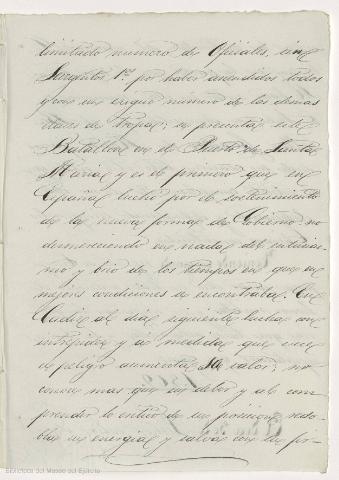 limitado número de Oficiales, sin
Sargentos 1.os por haber ascendidos todos
y con un exiguo número de las demas
clases de tropa; se presenta este
Batallon en el Puerto de Santa
Maria y es el primero que en
España lucho por el sostenimiento
de la nueva forma de Gobierno no
desmereciendo en nada del entusias-
mo y brio de los tiempos en que en
mejores condiciones se encontraba. En
Cadiz al dia siguiente lucha con
intrepidez y a medida que crece
el peligro aumenta su valor; no
conoce mas que su deber y al com-
prender lo critico de su posicion redo-
bla su energia y salva con su
Biblioteca del Museo del Ejército